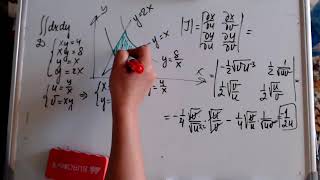 ∬dxdy
2) { xy = 4
xy = 8
y = x
y = 2x
{ u = y/x
v = xy
⇒ {
y
y=2x
y = x
y = 8/x
x
|J| = | ∂x/∂u ∂x/∂v
∂y/∂u ∂y/∂v | =
= | -½√v u⁻³ ½ 1/√uv
½ √v/u ½ √u/v | =
= -¼ √v/√u³ · √u/√v - ¼ √v/u · 1/√uv = -1/2u
BURO